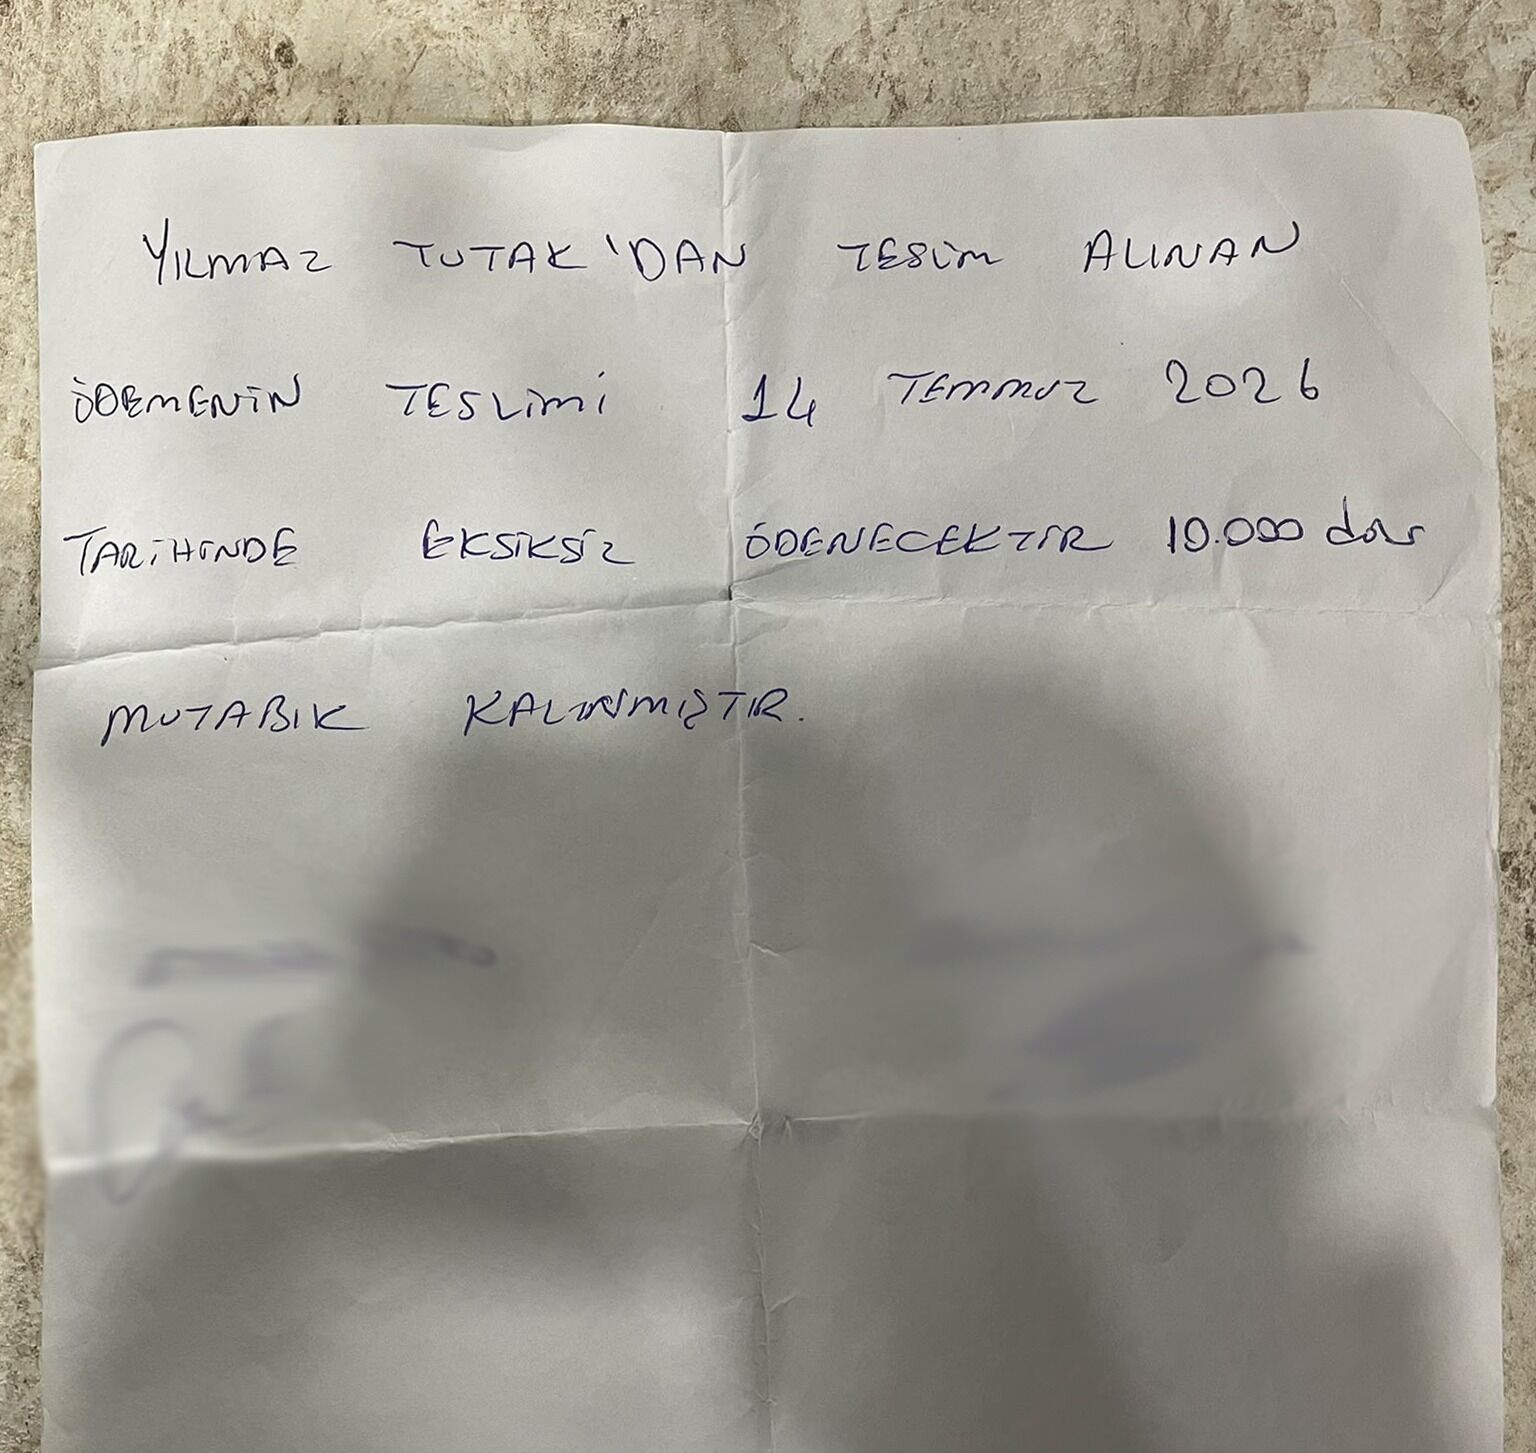 YILMAZ TUTAK'DAN TESLİM ALINAN
ÖDEMENİN TESLİMİ 14 TEMMUZ 2026
TARİHİNDE EKSİKSİZ ÖDENECEKTİR 10.000 dolar
MUTABIK KALINMIŞTIR.